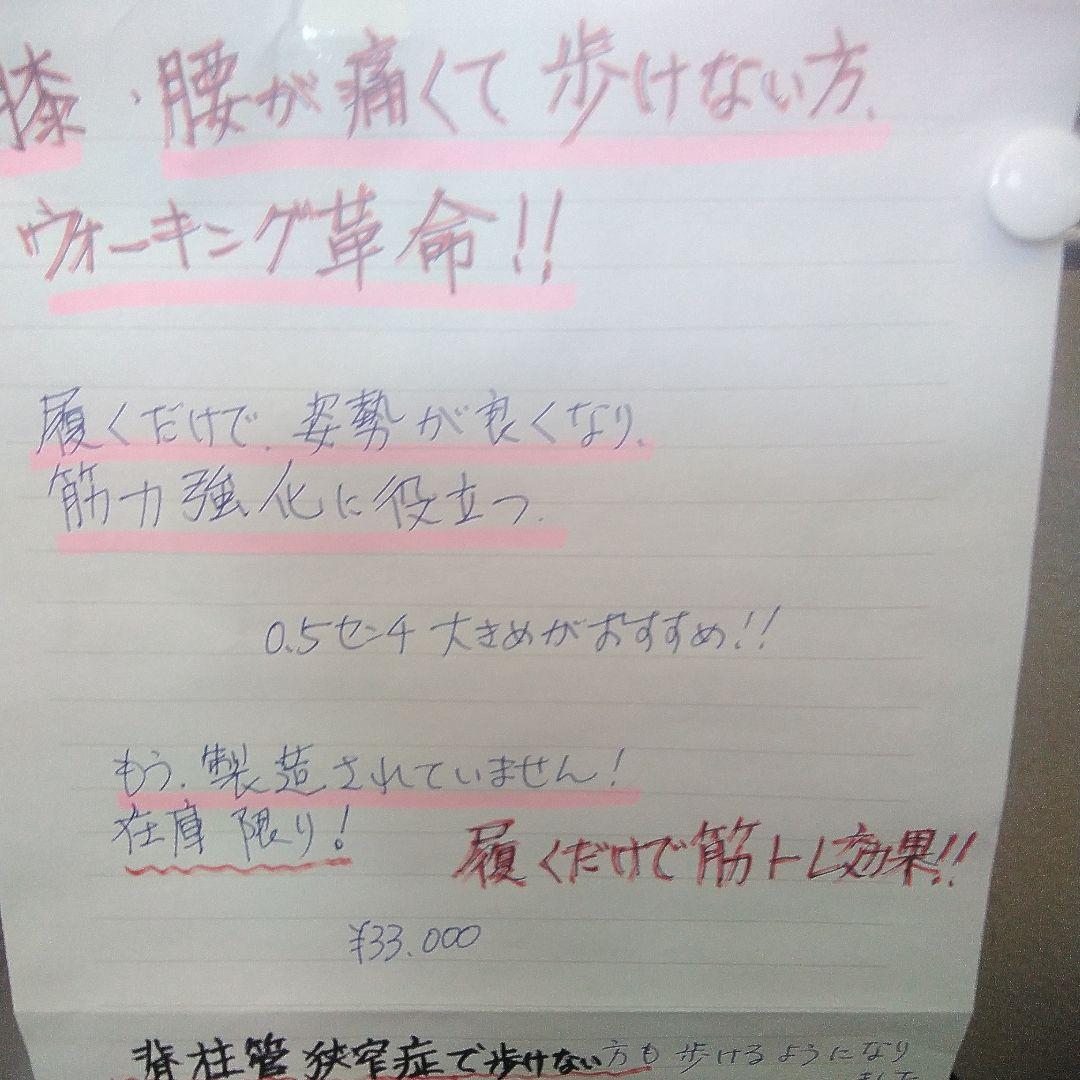 膝、腰が痛くて歩けない方、
ウォーキング革命!!
履くだけで、姿勢が良くなり、
筋力強化に役立つ。
0.5センチ大きめがおすすめ!!
もう、製造されていません!
在庫限り!
履くだけで筋トレ効果!!
¥33.000
脊柱管狭窄症で歩けない方も歩けるようになり